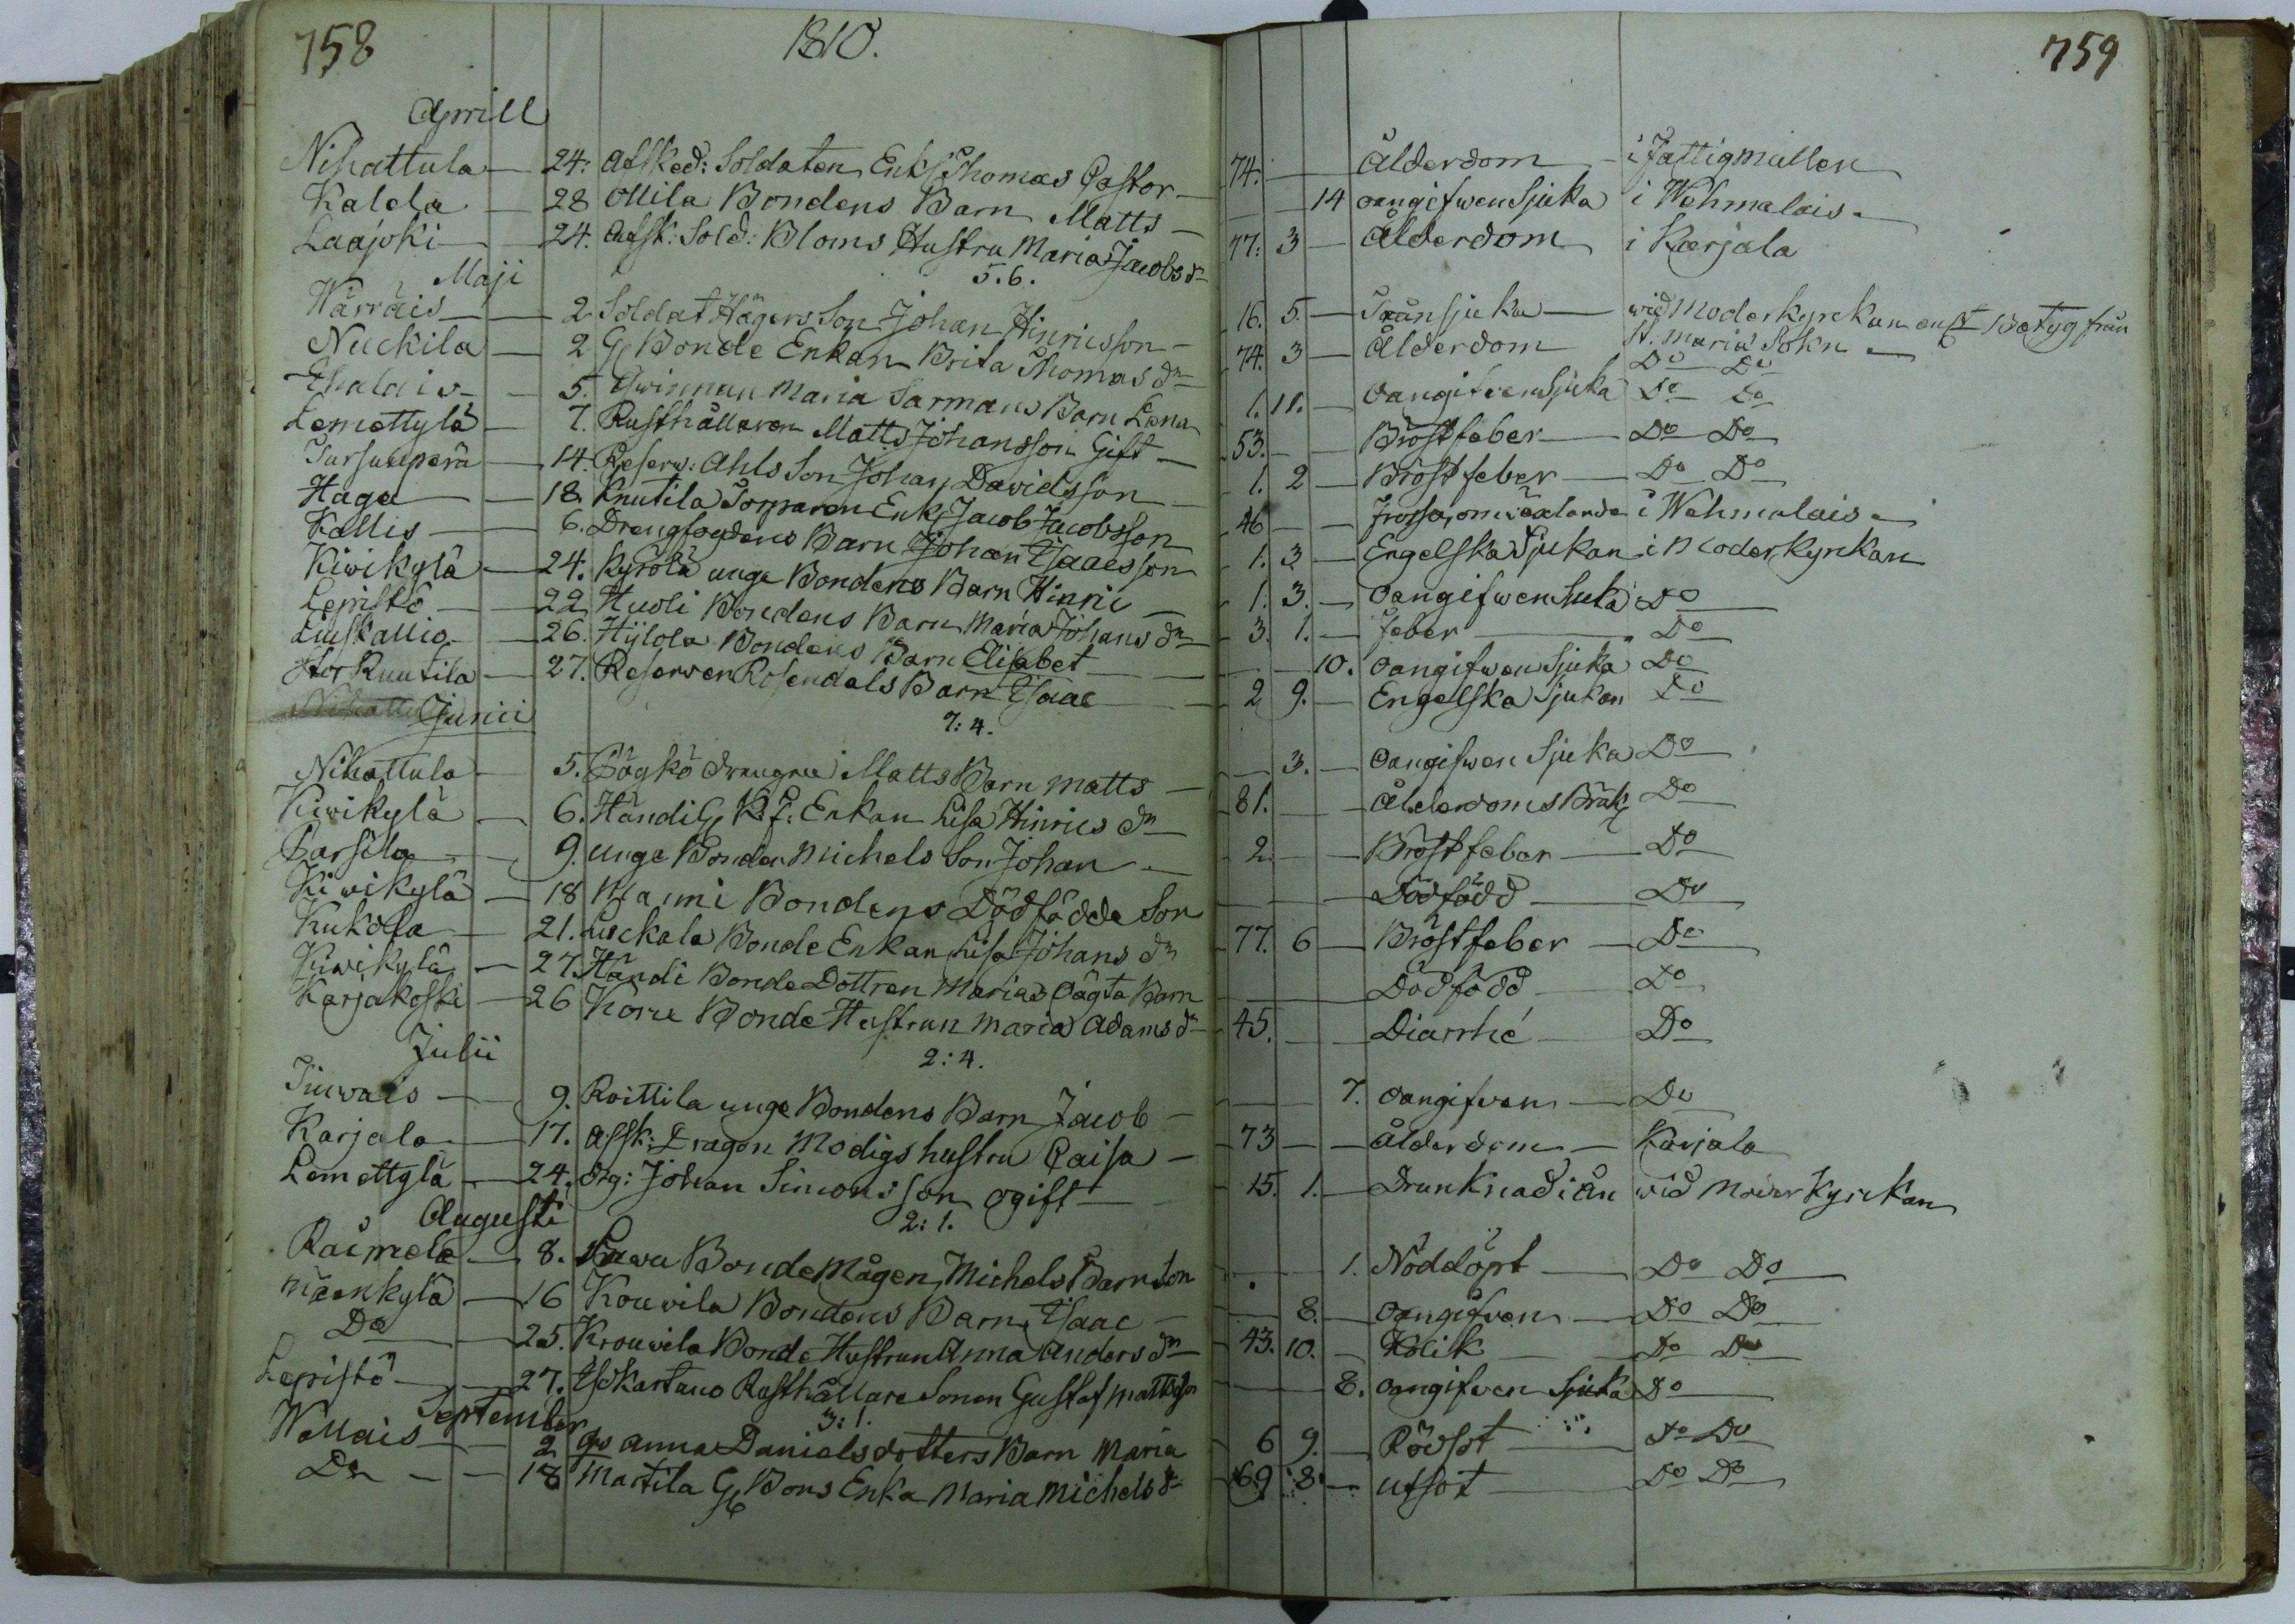 758
1810.
Aprill
Nihattula — 24. Afsked: Soldaten Enkl Thomas Castor —
Kalela — 28 Ollila Bondens Barn Matts —
Laajoki — 24. Afsk: Sold: Bloms Hustru Maria Jacobs dr
Maji 5.6.
Wärräis — 2 Soldat Hägers Son Johan Hinricsson —
Nuckila — 2 Gl Bonde Enkan Brita Thomas dr
Ehalais — 5. Qwinnan Maria Sarmans Barn Lena
Lemettylä — 7. Rusthållaren Matts Johansson Gift —
Tursunperä — 14. Reserv: Ahls Son Johan Davidsson —
Haga — 18. Knutila Torparen Enkl Jacob Jacobsson
Kallis — 6. Drengfogdens Barn Johan Isaacsson
Kiwikylä — 24. Kyrölä unge Bondens Barn Hinric —
Lepistö — 22 Huoli Bondens Barn Maria Johans dr
Liuskallio — 26. Hylola Bondens Barn Elisabet —
Stor Knutila — 27. Reserven Rosendals Barn Isaac
Junii 7:4.
Nihattula — 5. Pögkö drengen Matts Barn Matts —
Kiwikylä — 6. Händi Gl K:f: Enkan Lisa Hinrics dr
Parsila — 9. unge Bonden Michels Son Johan —
Kiwikylä — 18 Maimi Bondens Dödfödde Son
Kukola — 21. Luckala Bonde Enkan Lisa Johans dr
Kiwikylä — 27. Händi Bonde Dottren Marias Oägta Barn
Karjakoski — 26 Korve Bonde Hustrun Maria Adams dr
Julii 2:4.
Juvais — 9. Roittila unge Bondens Barn Jacob —
Karjala — 17. Afsk: Dragon Modigs hustru Caisa —
Lemettylä — 24. drg: Johan Simonsson ogift —
Augusti 2:1.
Raimela — 8. Bonde Mågen Michels Barn Son
Mäenkylä — 16 Kouvila Bondens Barn Isaac —
Do — 25. Krouvila Bonde Hustrun Anna Anders dr
Lepistö — 27. Isokartano Rusthållare Sonen Gustaf Mattsson
September 3:1.
Wallais — 2 Anna Danielsdotters Barn Maria
Do — 18 Martila Gl Bons Enka Maria Michels dr
759
74. — Ålderdom — i Fattigmullen
— 14 oangifwen Sjuka i Wehmalais —
77. 3 — Ålderdom i Karjala
16. 5. — Tränsjuka — wid Moderkyrckan Betyg från
St. Marie Sokn —
74. 3 — Ålderdom Do Do
1. 11. — Oangifven Sjuka Do Do
53. — Bröstfeber — Do Do
1. 2 — Bröstfeber — Do Do
46 — frossa, omväxlande i Wehmalais —
1. 3 — Engelska Sjukan i Moderkyrckan
1. 3. — Oangifwen Siuka Do
3. 1. — feber — Do
— 10. Oangifwen Sjuka Do
2 9. — Engelska Sjukan Do
— 3. — Oangifwen Sjuka Do
81. — Ålderdoms Bräckl Do
2 — Bröstfeber — Do
— Dödfödd — Do
77. 6 — Bröstfeber — Do
— Dödfödd — Do
45. — Diarrhé — Do
— 7. Oangifven — Do
73 — ålderdom — Karjala
15. 1. — Drunknad i ån wid Moder Kyrckan
— 1. Nöddöpt — Do Do
— 8. — Oangifven — Do Do
43. 10. — Kolik — Do Do
— 8. Oangifven Sjuka Do
6 9. — Rödsot — Do Do
69 8. — Utsot — Do Do